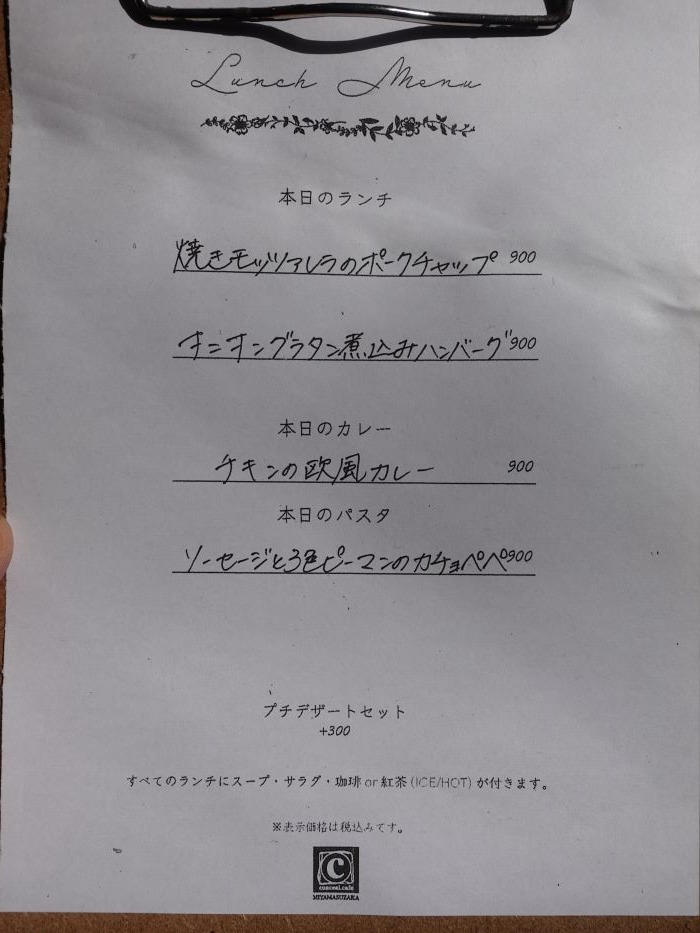 Lunch Menu
本日のランチ
焼きモッツァレラのポークチャップ 900
オニオングラタン煮込みハンバーグ 900
本日のカレー
チキンの欧風カレー 900
本日のパスタ
ソーセージと3色ピーマンのカチョペペ 900
プチデザートセット
+300
すべてのランチにスープ・サラダ・珈琲 or 紅茶 (ICE/HOT) が付きます。
※表示価格は税込みです。
C
conceal.cafe
MIYAMASUZAKA